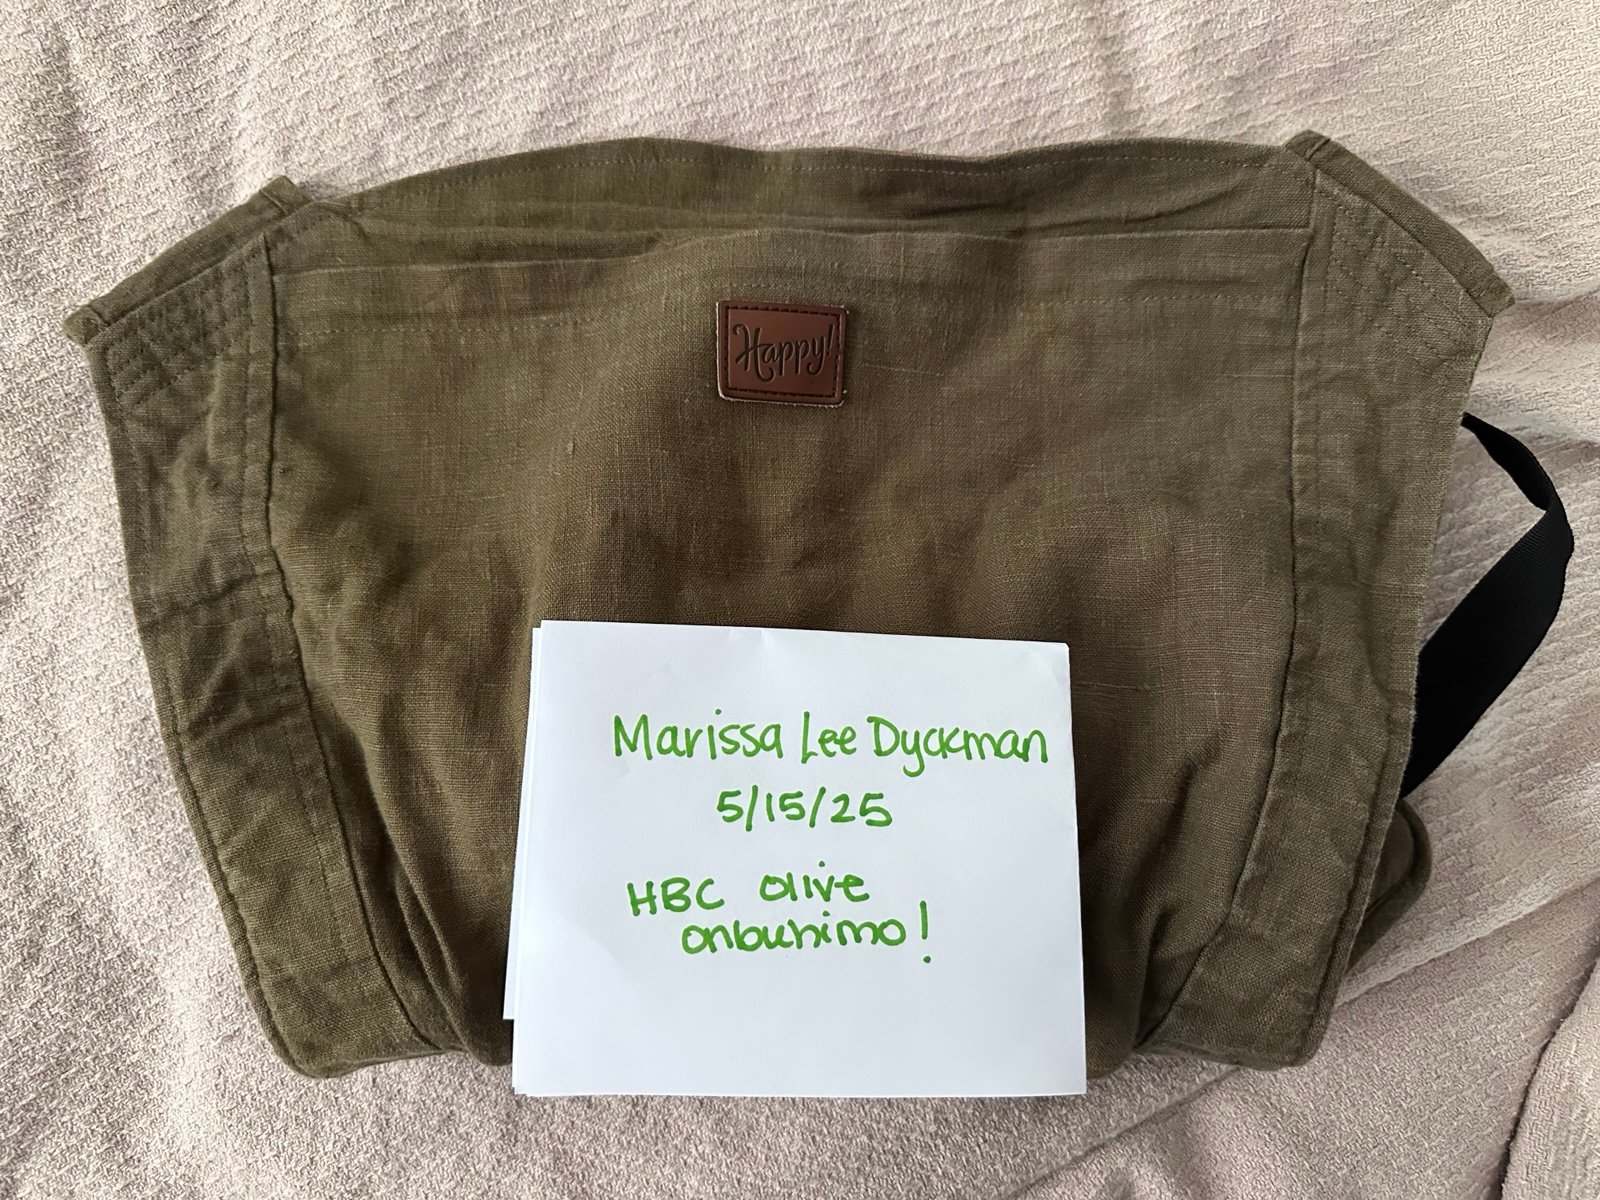 Happy!
Marissa Lee Dyckman
5/15/25
HBC Olive
onbuhimo!